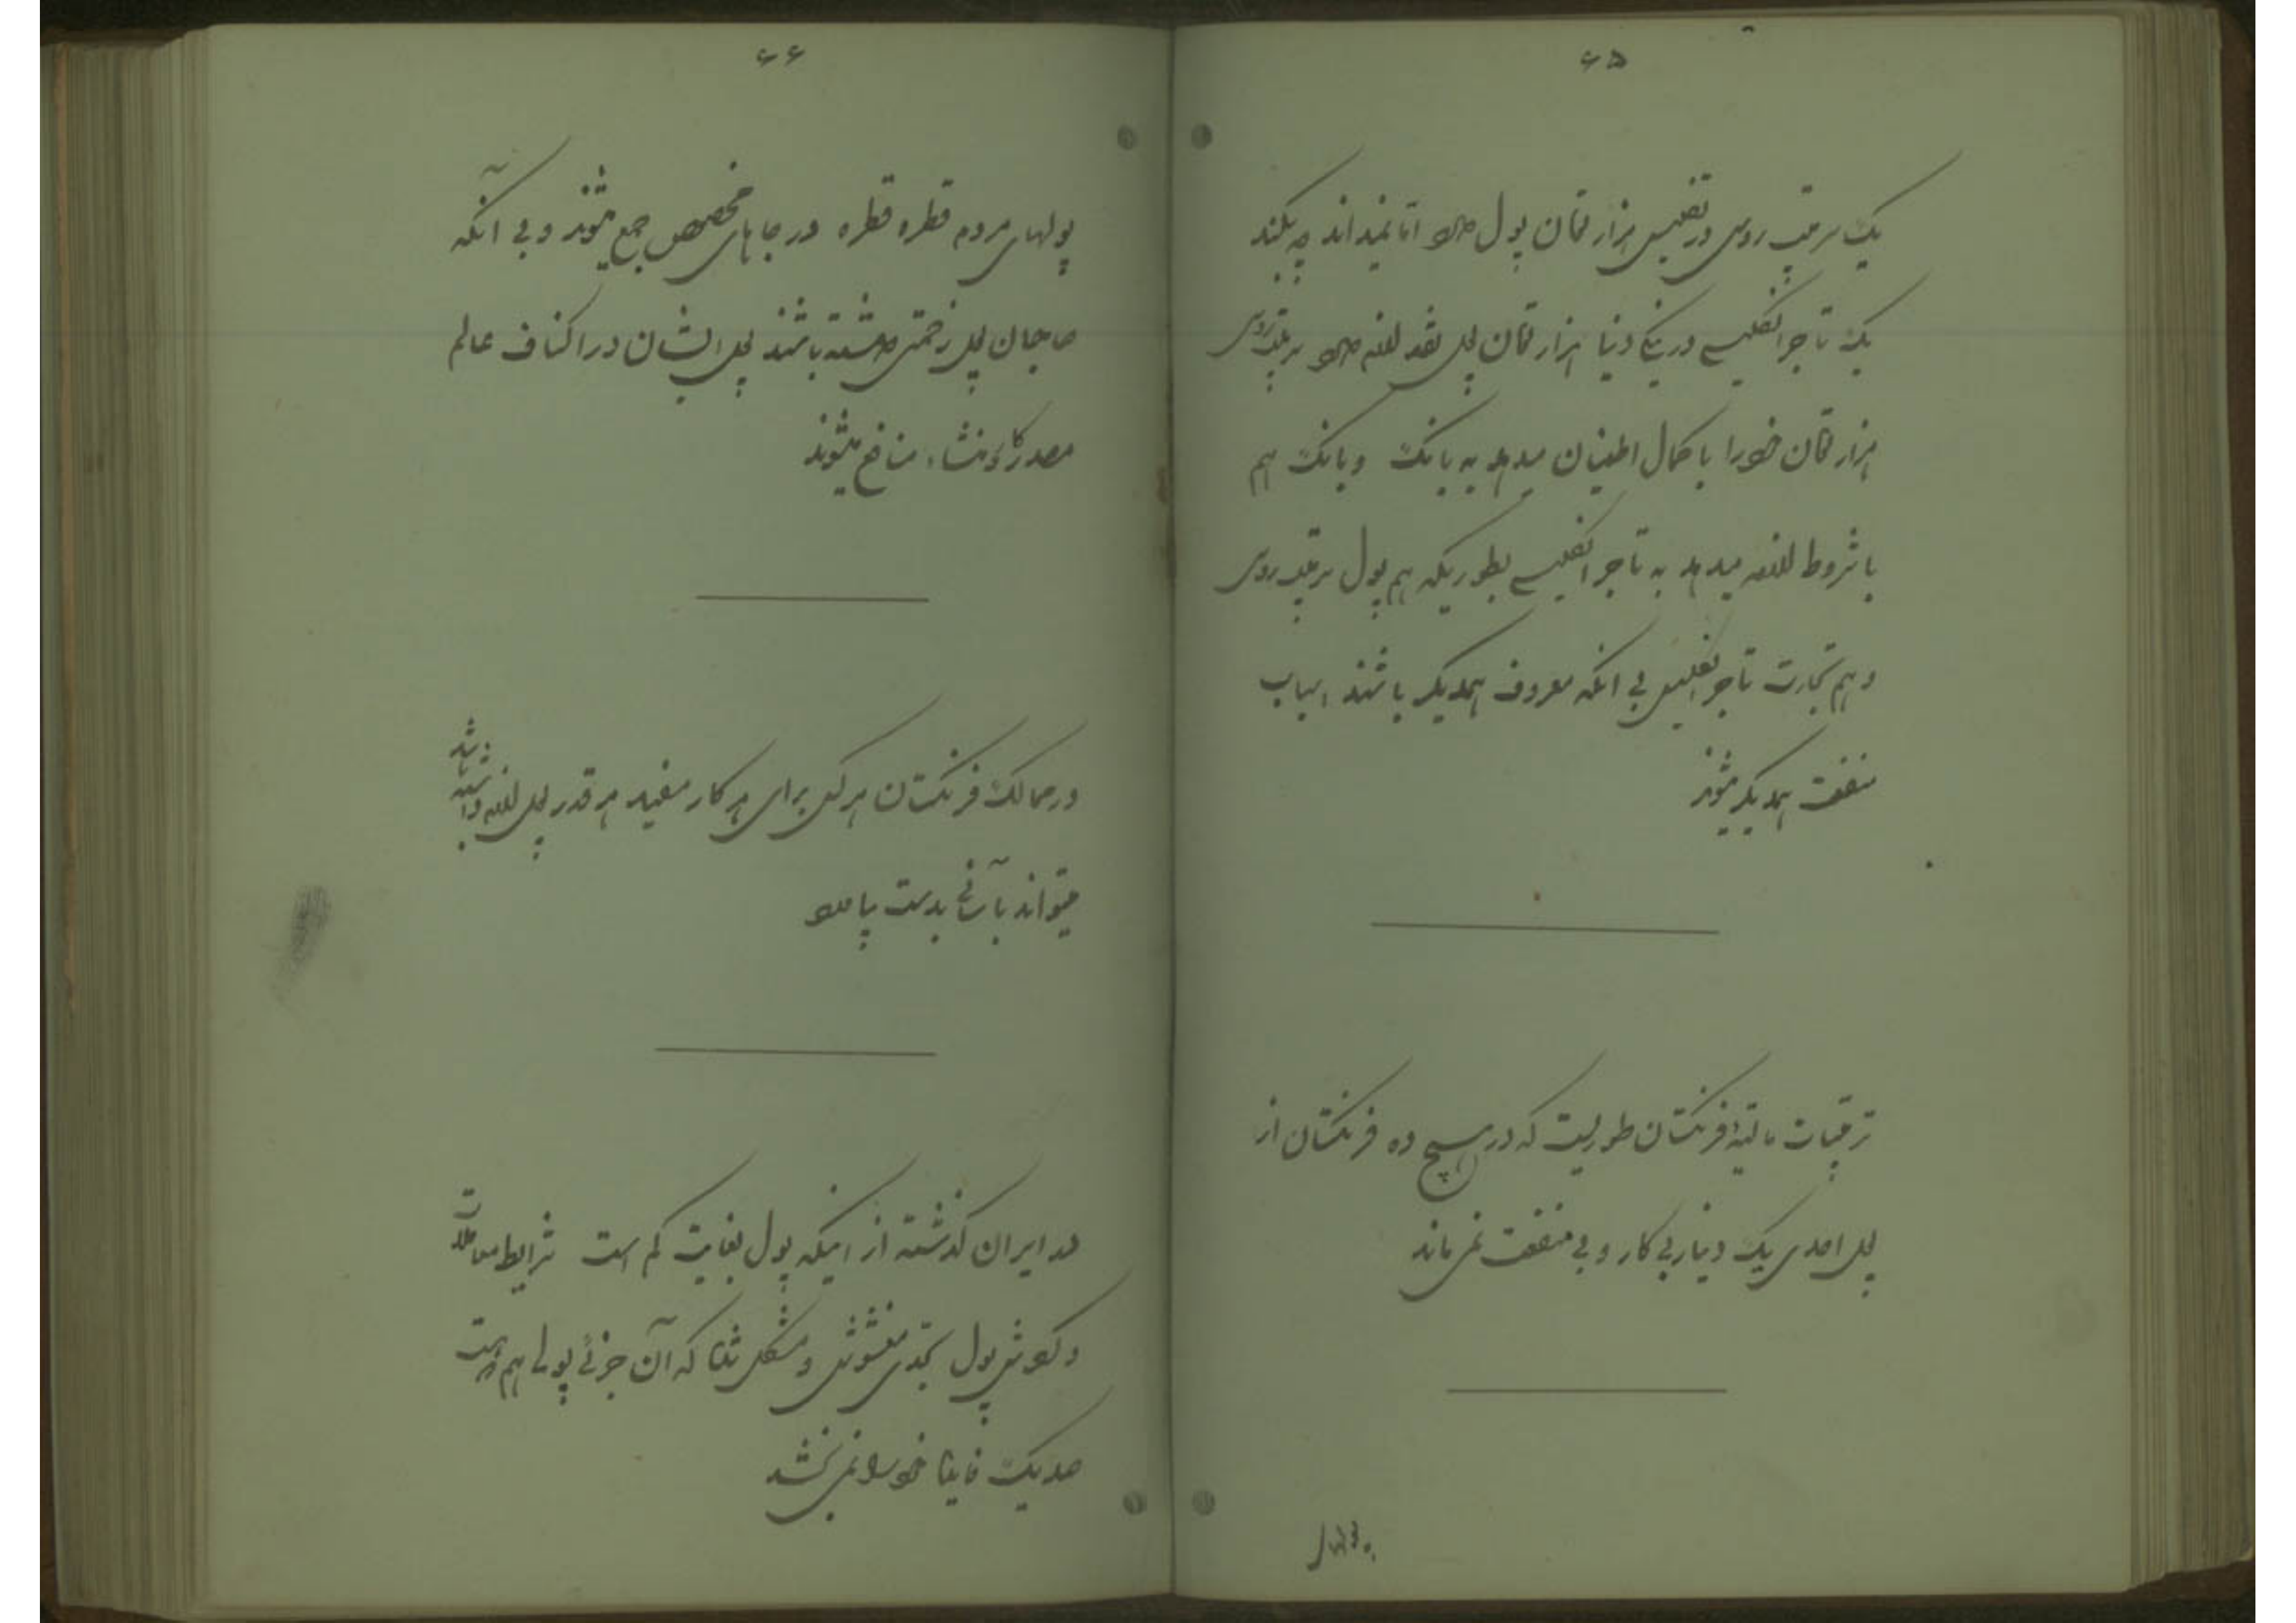 ۶۵
یک سرتیپ روسی در تفلیس هزار تومان پول دارد اما نمیداند چه بکند
یک تاجر انگلیسی در ینگی دنیا هزار تومان پول نقد لازم دارد سرتیپ روسی
هزار تومان خود را با کمال اطمینان میدهد به بانک و بانک هم
با شروط لازمه میدهد به تاجر انگلیسی بطوریکه هم پول سرتیپ روسی
و هم تجارت تاجر انگلیس بی آنکه معروف همدیگر باشند اسباب
منفعت همدیگر میشوند
ترقیات مالیهٔ فرنگستان طوریست که در هیچ ده فرنگستان از
پول احدی یک دینار بی کار و بی منفعت نمی ماند
پولهای
۶۶
پولهای مردم قطره قطره در جاهای مخصوص جمع میشوند و بی آنکه
صاحبان پول زحمتی داشته باشند پول ایشان در اکناف عالم
مصدر کار و منشاء منافع میشوند
در ممالک فرنگستان هر کس برای هر کار مفید هر قدر پول لازم داشته باشد
میتواند بآسانی بدست بیاورد
در ایران گذشته از اینکه پول بغایت کم است شرایط معاملات
و گردش پول بحدی مغشوش و مشکل شده که آن جزئی پولی هم که هست
صد یک فایده خود را نمی بخشد